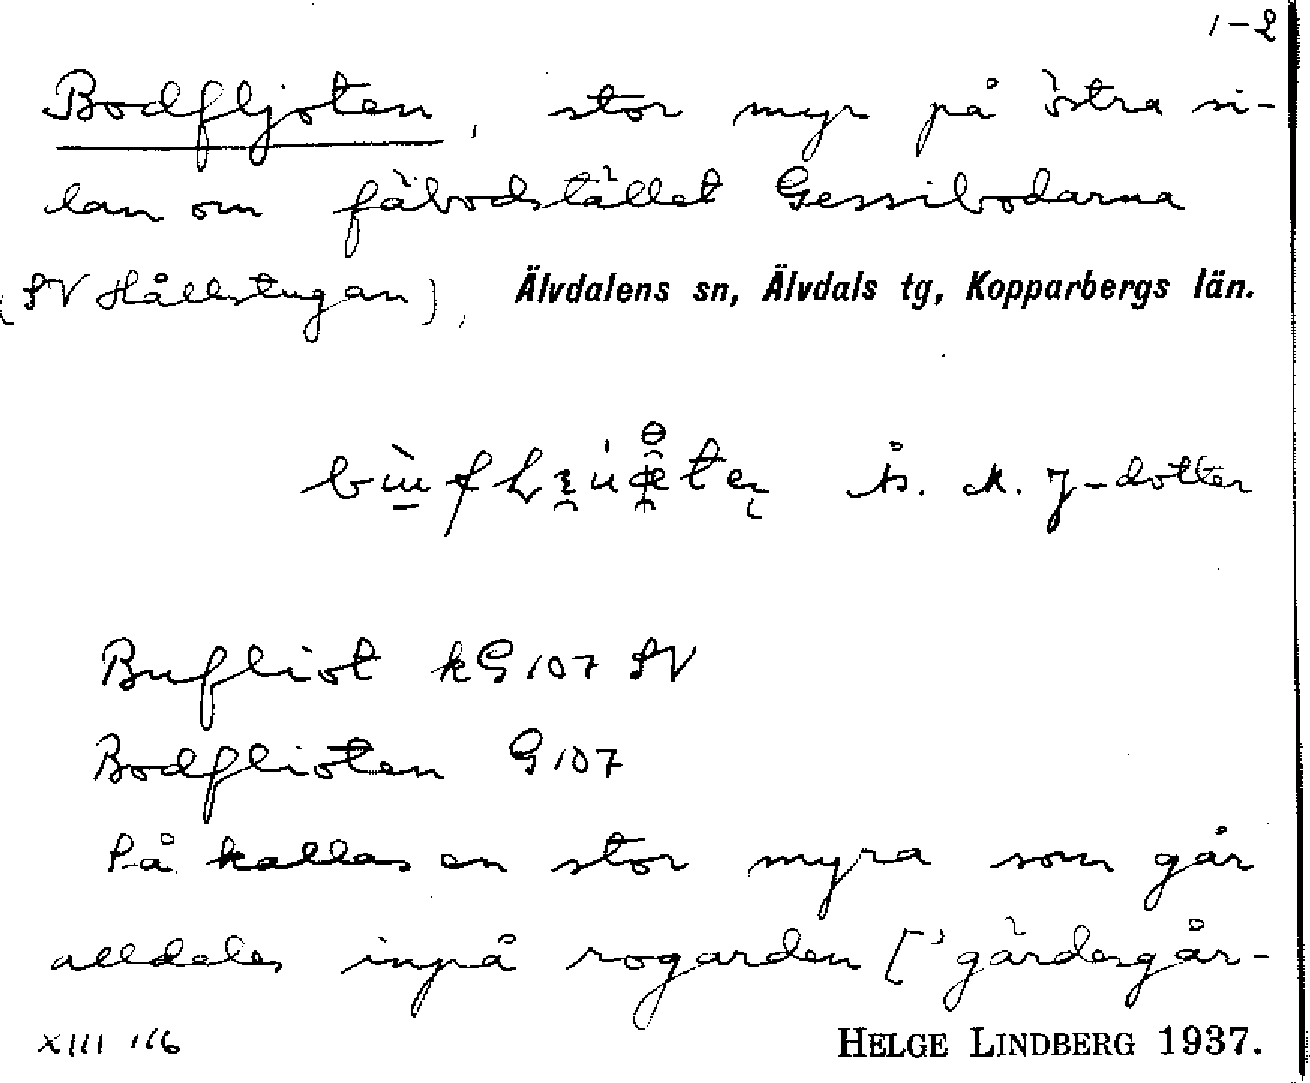 1-2
Bodfljoten, stor myr på östra si-
dan om fäbodstället Gessibodarna
(SV Hållstugan), Älvdalens sn, Älvdals tg, Kopparbergs län.
J-dotter
Bufliot kG 107 SV
Bodflioten G 107
Så kallas en stor myra som går
alldeles inpå rogarden ['gärdesgår-
XIII 1/6 HELGE LINDBERG 1937.